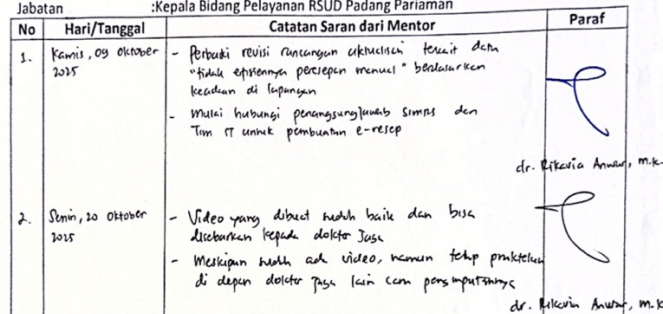 Jabatan :Kepala Bidang Pelayanan RSUD Padang Pariaman
No Hari/Tanggal Catatan Saran dari Mentor Paraf
1. Kamis, 09 Oktober - Perbaiki revisi rancangan aktualisasi terkait data
2025 "tidak efisiennya peresepan manual" berdasarkan
keadaan di lapangan
- Mulai hubungi penanggungjawab SIMRS dan
Tim IT untuk pembuatan e-resep
dr. Rikavia Anwar, m.k.
2. Senin, 20 Oktober - Video yang dibuat sudah baik dan bisa
2025 disebarkan kepada dokter Jaga
- Meskipun sudah ada video, namun tetap praktekan
di depan dokter Jaga lain cara
dr. Rikavia Anwar, m.k